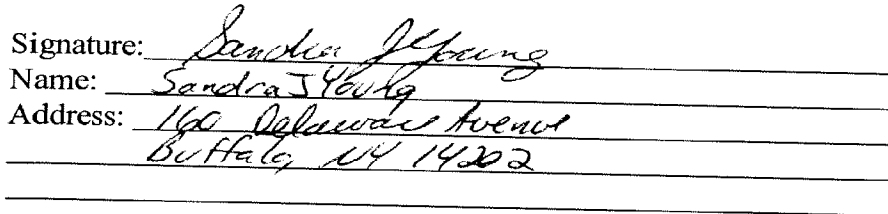 Signature: Sandra J Young
Name: Sandra J Young
Address: 160 Delaware Avenue
Buffalo, NY 14202